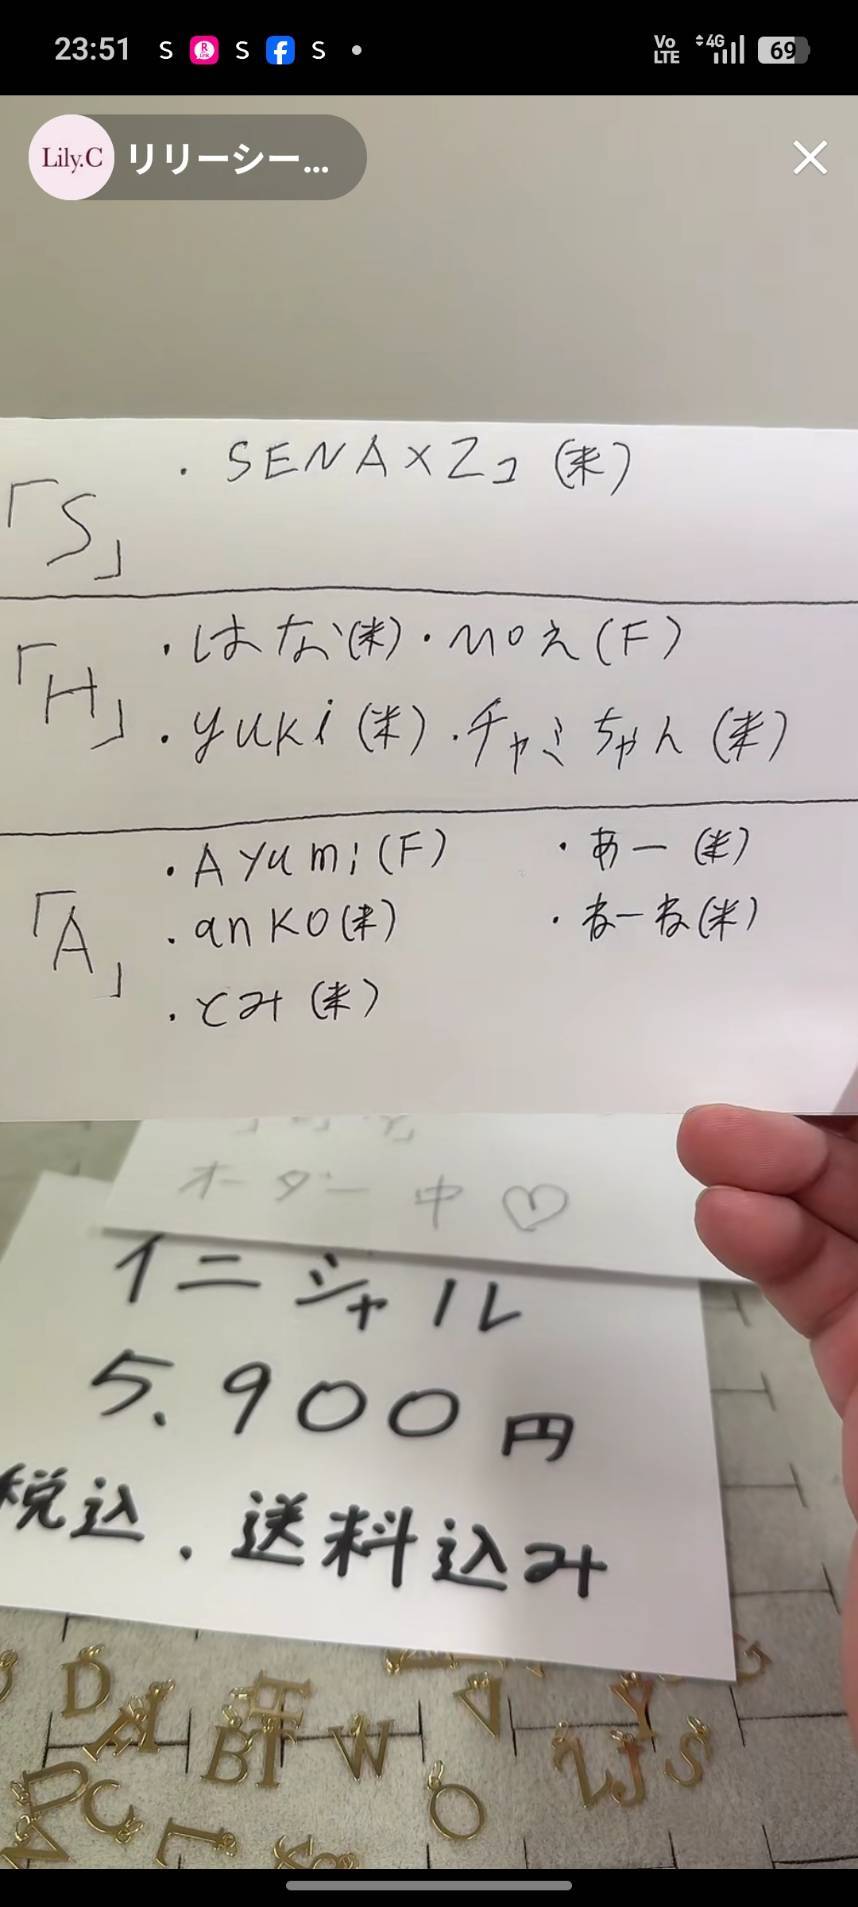 23:51 S S S 4G 69
Vo LTE
Lily.C リリーシー...
「S」
・SENA×Zュ (米)
「H」
・はな(米)・moえ(F)
・yuki(米)・チャミちゃん(米)
「A」
・Ayumi(F) ・あー(米)
・anKO(米) ・ねーね(米)
・とみ(米)
オーダー中♡
イニシャル
5.900円
税込.送料込み
D
H
A
Y
G
BT
W
Z
J
S
O
C
L